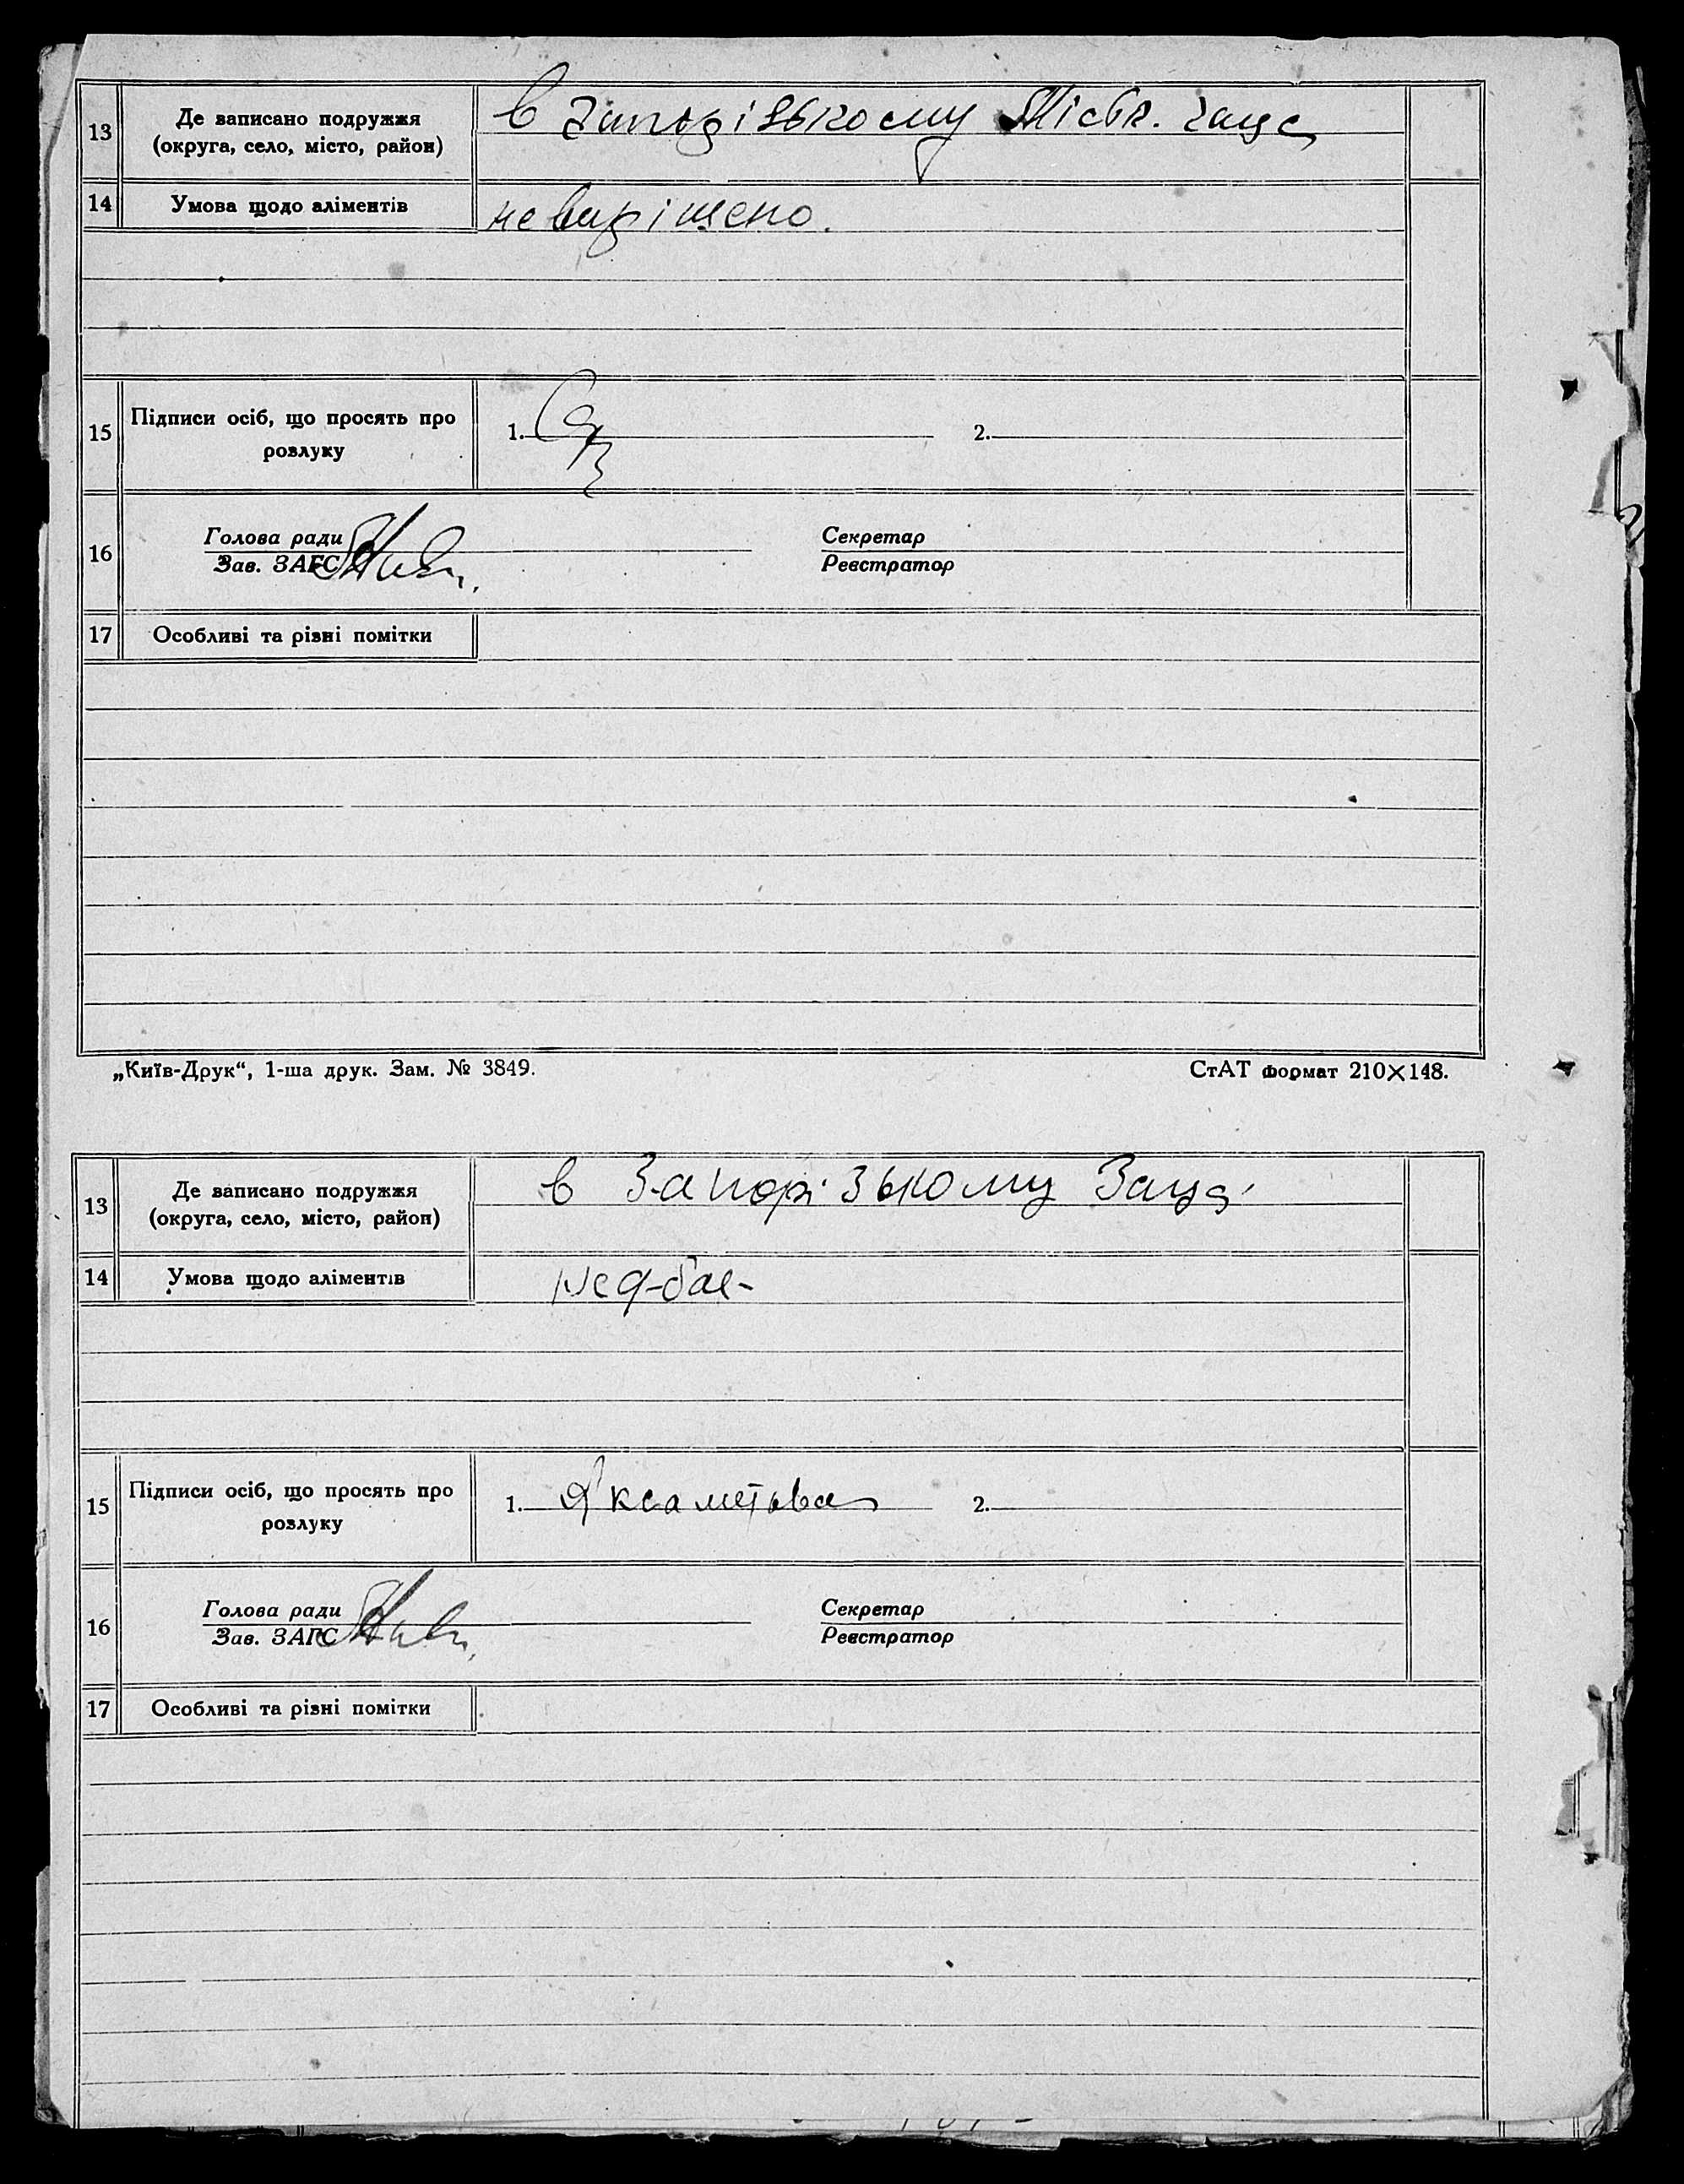 13 Де записано подружжя
(округа, село, місто, район)
в Запорізькому Міськ. Загсі
14 Умова щодо аліментів
не вирішено.
15 Підписи осіб, що просять про
розлуку
1. 2.
16 Голова ради Секретар
Зав. ЗАГС Реєстратор
17 Особливі та різні помітки
„Київ-Друк“, 1-ша друк. Зам. № 3849. СтАТ формат 210×148.
13 Де записано подружжя
(округа, село, місто, район)
в Запорізькому Загсі
14 Умова щодо аліментів
15 Підписи осіб, що просять про
розлуку
1. Аксаметова 2.
16 Голова ради Секретар
Зав. ЗАГС Реєстратор
17 Особливі та різні помітки